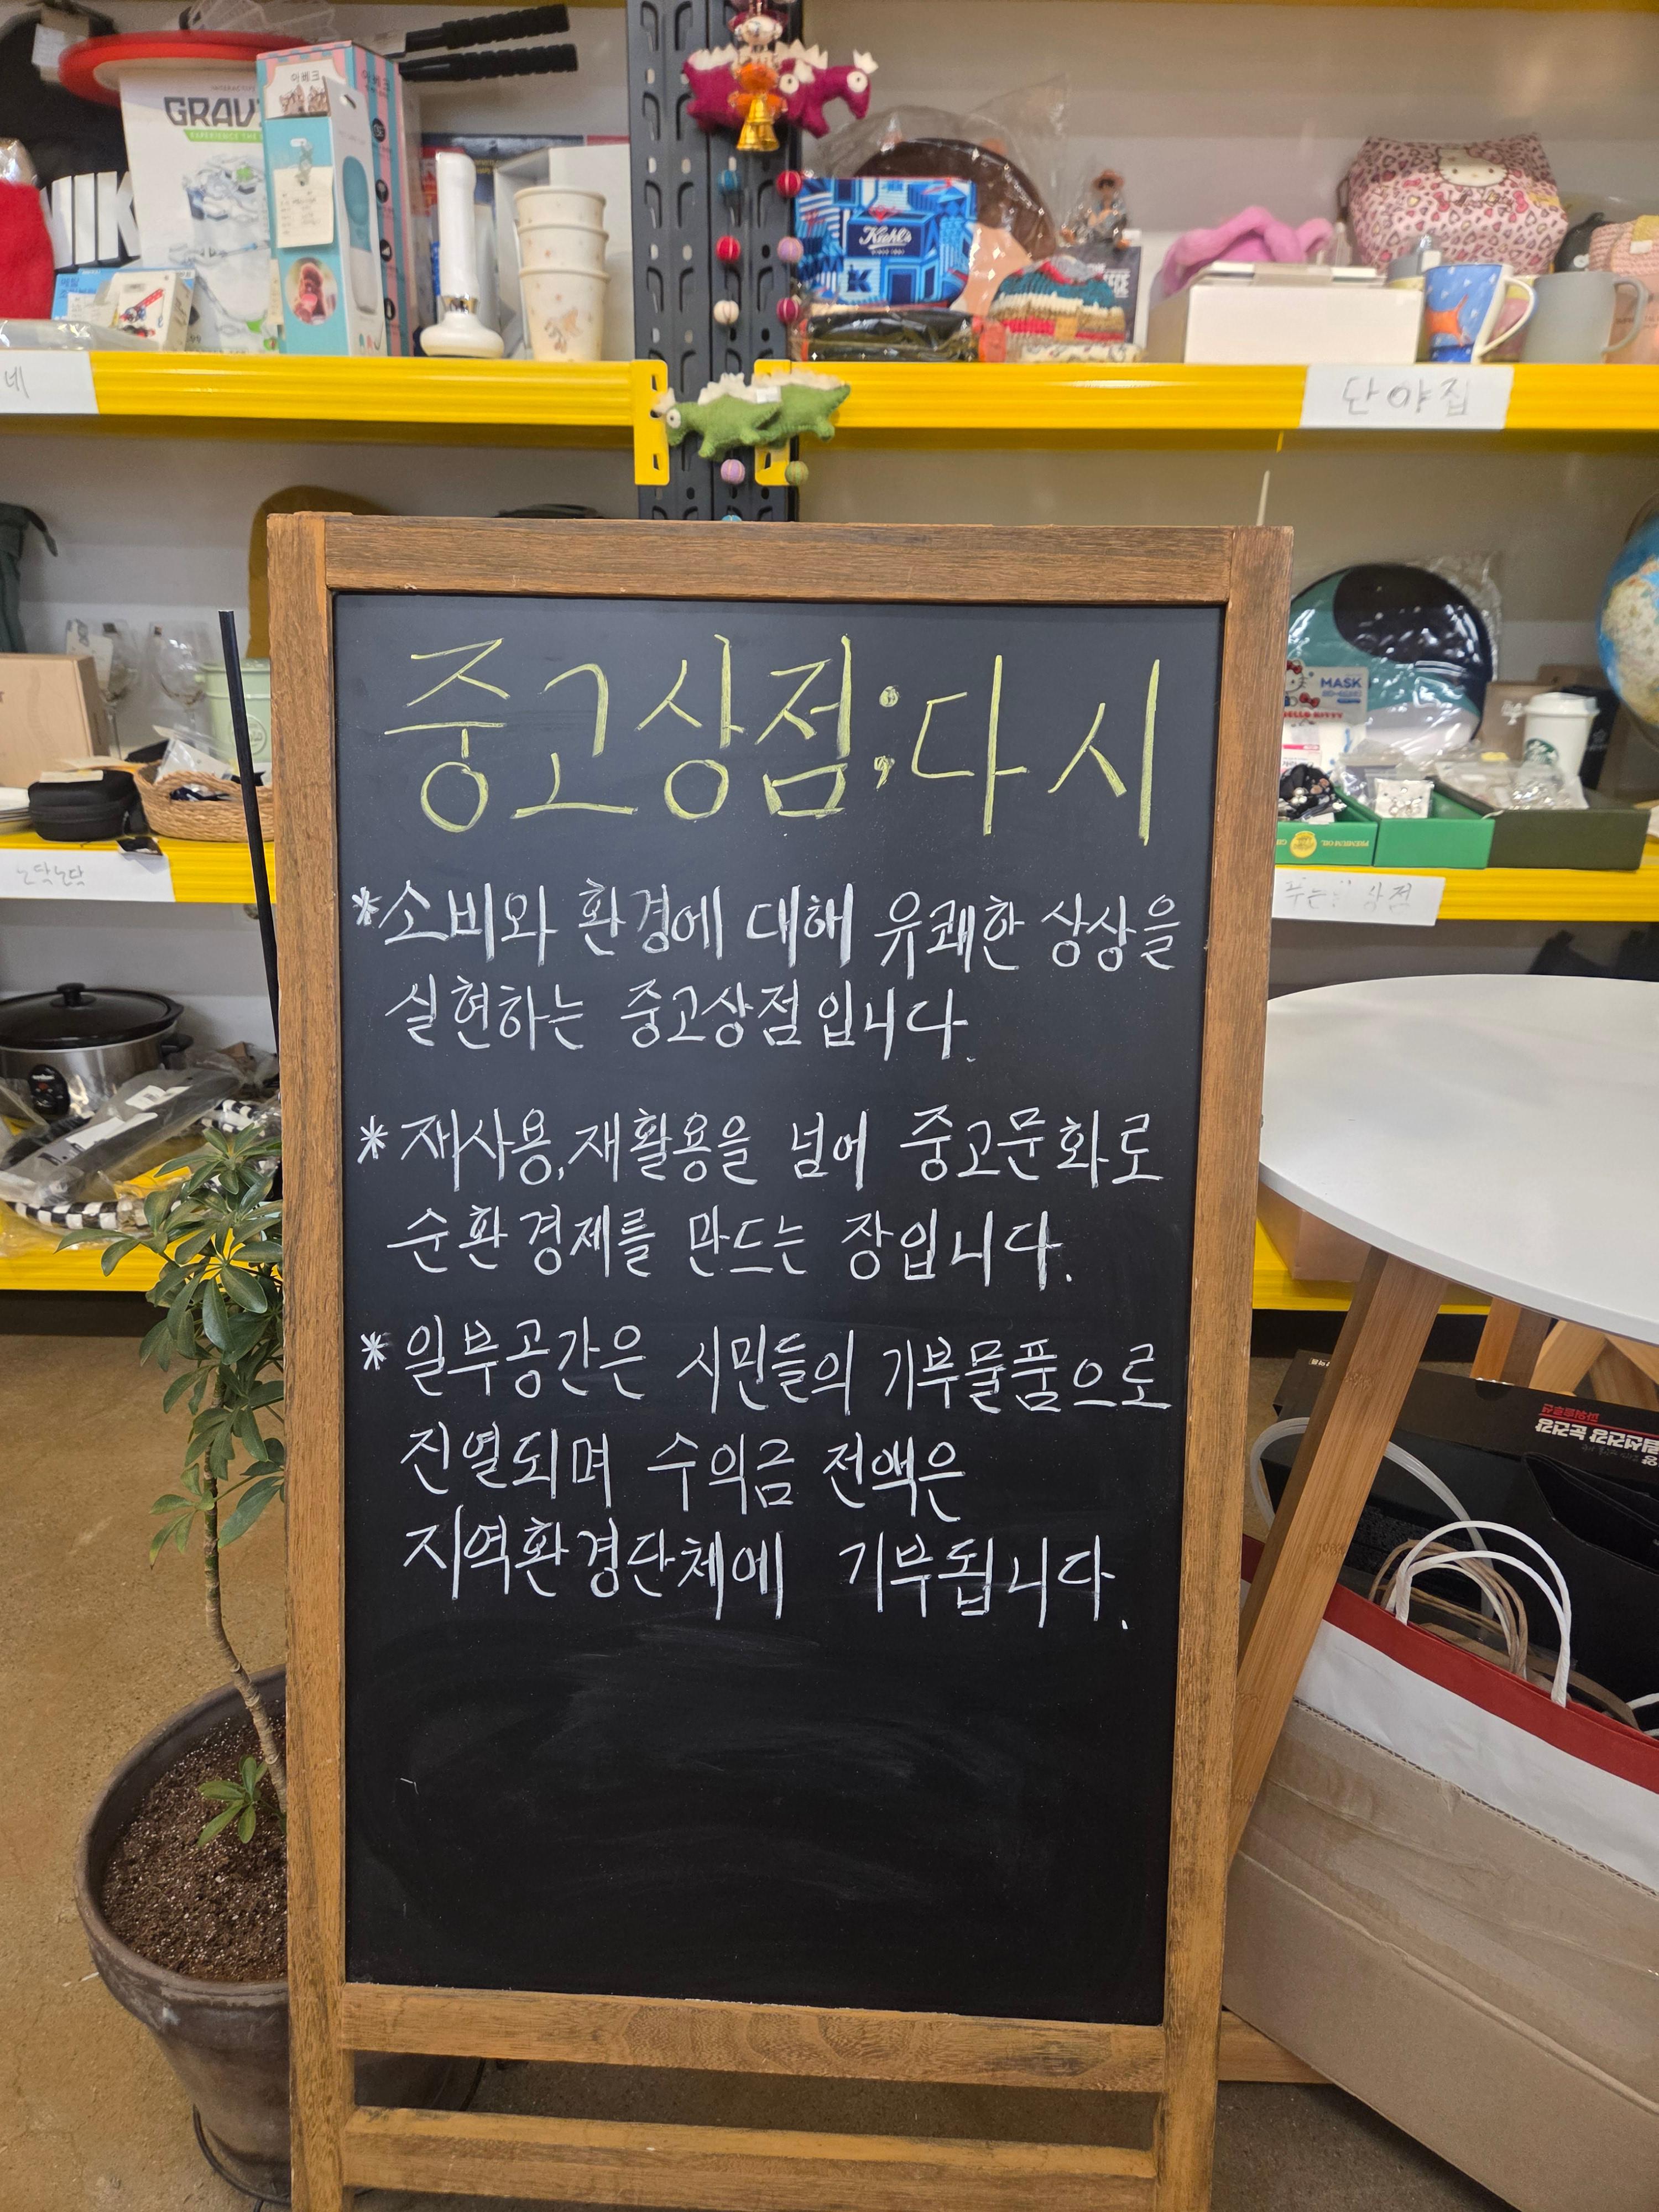 GRAV
EXPERIENCE THE
아베크
Kiehl's
네
단야집
MASK
HELLO KITTY
중고상점;다시
*소비와 환경에 대해 유쾌한 상상을
실현하는 중고상점입니다.
*재사용,재활용을 넘어 중고문화로
순환경제를 만드는 장입니다.
*일부공간은 시민들의 기부물품으로
진열되며 수익금 전액은
지역환경단체에 기부됩니다.
노닥노닥
상점
PREMIUM OIL